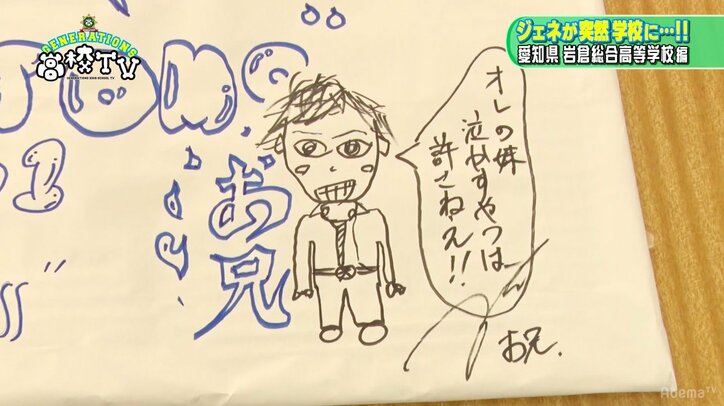 GENERATIONS
高校TV
GENERATIONS HIGH SCHOOL TV
ジェネが突然学校に…!!
愛知県 岩倉総合高等学校編
お兄
オレの妹
泣かすやつは
許さねえ!!
お兄.
AbemaTV